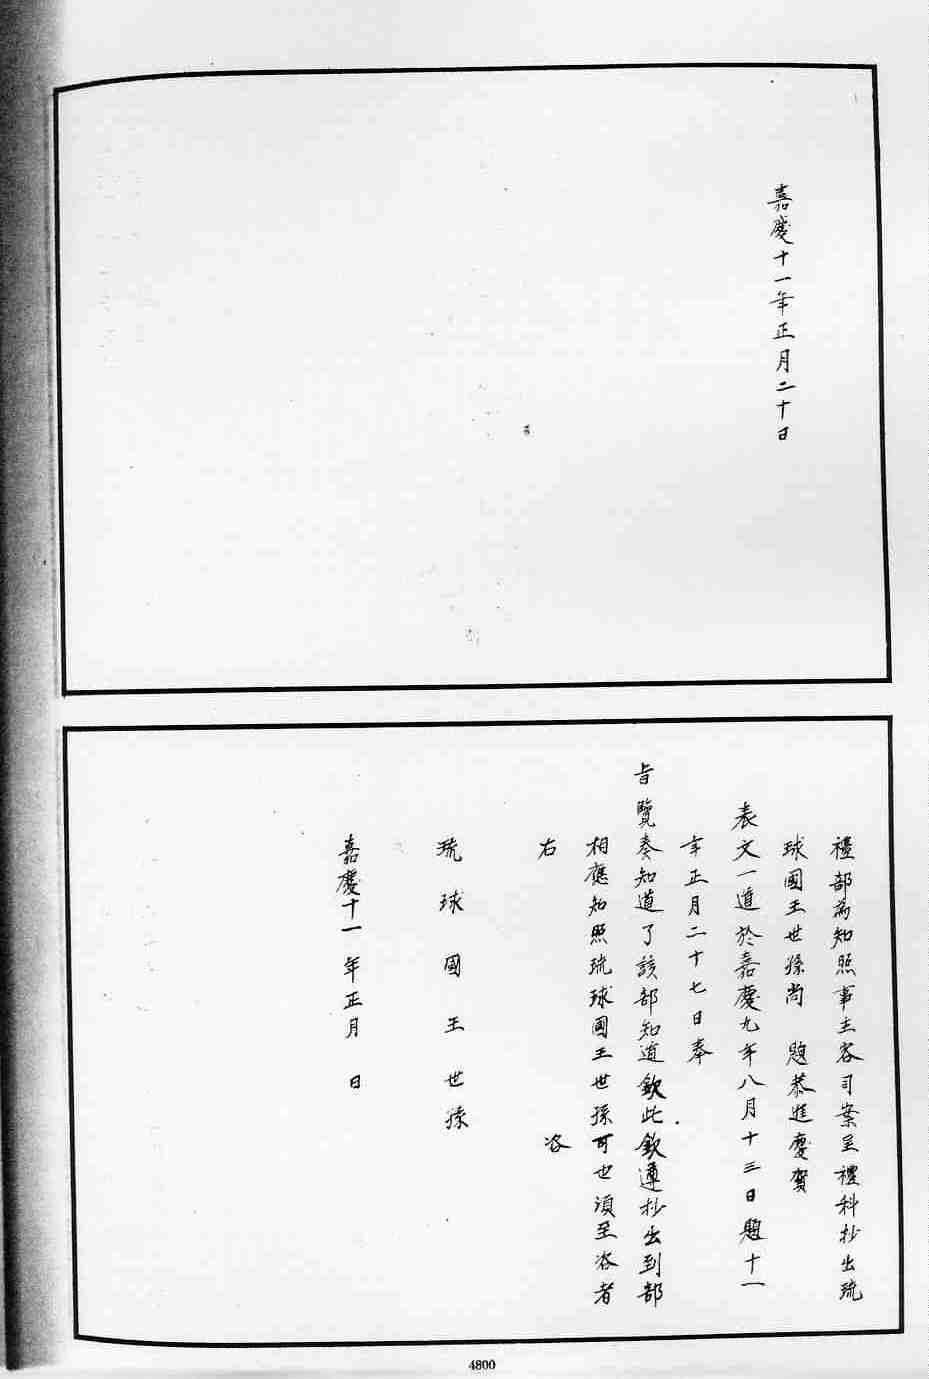 嘉慶十一年正月二十日
禮部為知照事主客司案呈禮科抄出琉
球國王世孫尚　題恭進慶賀
表文一道於嘉慶九年八月十三日題十一
年正月二十七日奉
旨覽奏知道了該部知道欽此欽遵抄出到部
相應知照琉球國王世孫可也須至咨者
右　咨
琉球國王世孫
嘉慶十一年正月　日
4800